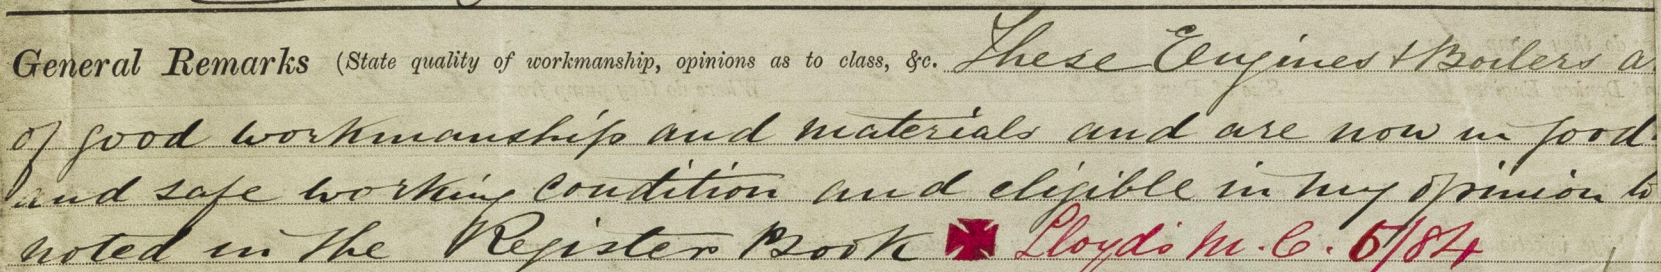 General Remarks (State quality of workmanship, opinions as to class, &c. These Engines & Boilers a
of good workmanship and materials and are now in good
and safe working condition and eligible in my opinion to
noted in the Register Book ✠ Lloyds M.C. 5/84